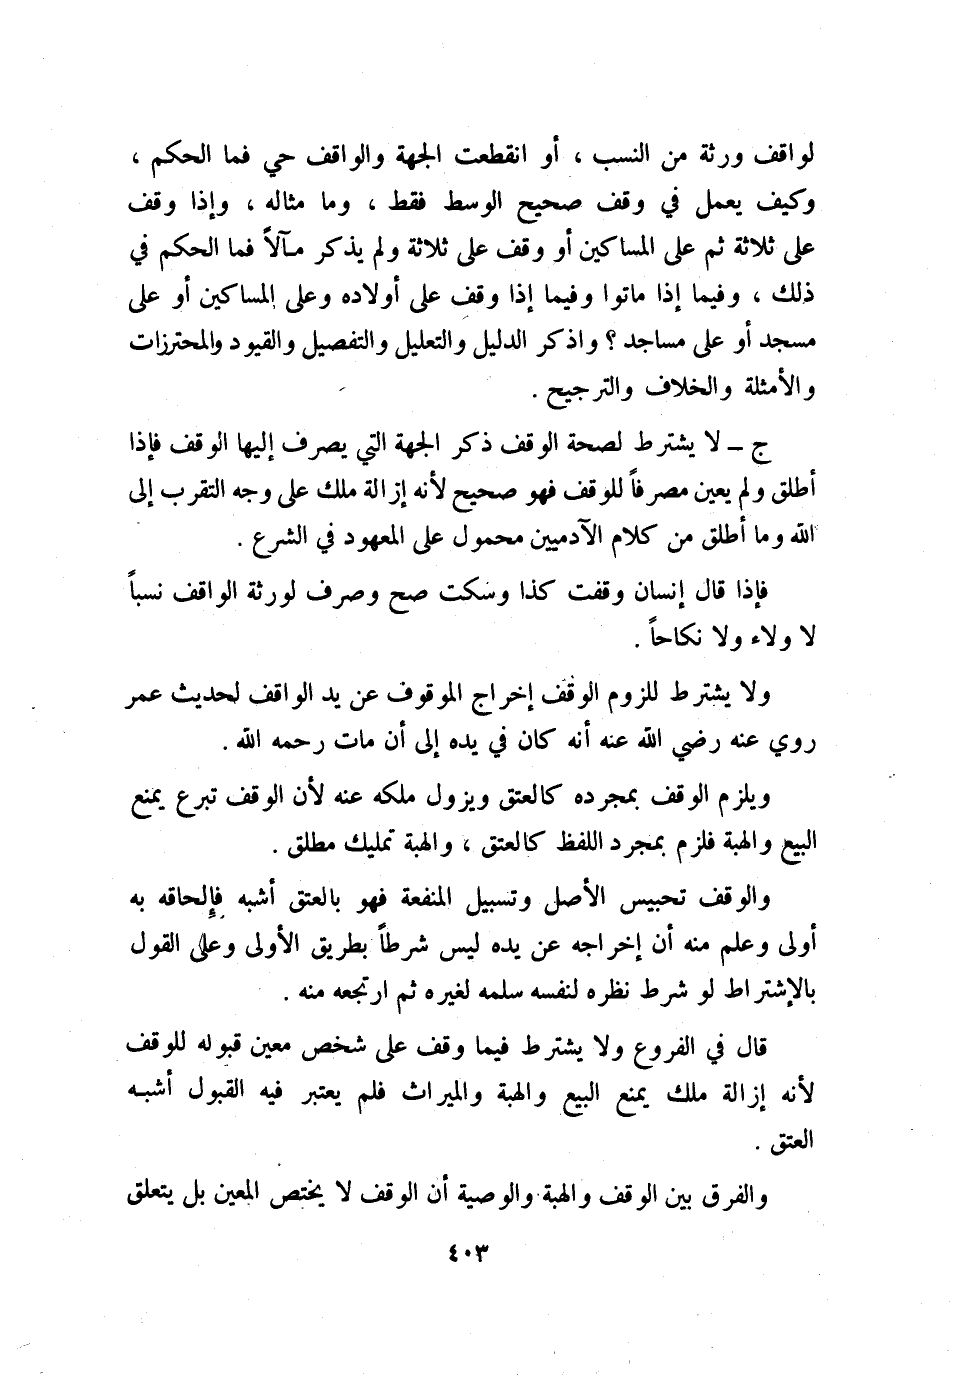 لواقف ورثة من النسب ، أو انقطعت الجهة والواقف حي فما الحكم ،
وكيف يعمل في وقف صحيح الوسط فقط ، وما مثاله ، وإذا وقف
على ثلاثة ثم على المساكين أو وقف على ثلاثة ولم يذكر مـآلاً فما الحكم في
ذلك ، وفيما إذا ماتوا وفيما إذا وقف على أولاده وعلى المساكين أو على
مسجد أو على مساجد ؟ واذكر الدليل والتعليل والتفصيل والقيود والمحترزات
والأمثلة والخلاف والترجيح .
ج ــ لا يشترط لصحة الوقف ذكر الجهة التي يصرف إليها الوقف فإذا
أطلق ولم يعين مصرفاً للوقف فهو صحيح لأنه إزالة ملك على وجه التقرب إلى
الله وما أطلق من كلام الآدميين محمول على المعهود في الشرع .
فإذا قال إنسان وقفت كذا وسكت صح وصرف لورثة الواقف نسباً
لا ولاء ولا نكاحاً .
ولا يشترط للزوم الوقف إخراج الموقوف عن يد الواقف لحديث عمر
روي عنه رضي الله عنه أنه كان في يده إلى أن مات رحمه الله .
ويلزم الوقف بمجرده كالعتق ويزول ملكه عنه لأن الوقف تبرع يمنع
البيع والهبة فلزم بمجرد اللفظ كالعتق ، والهبة تمليك مطلق .
والوقف تحبيس الأصل وتسبيل المنفعة فهو بالعتق أشبه فإلحاقه به
أولى وعلم منه أن إخراجه عن يده ليس شرطاً بطريق الأولى وعلى القول
بالإشتراط لو شرط نظره لنفسه سلمه لغيره ثم ارتجعه منه .
قال في الفروع ولا يشترط فيما وقف على شخص معين قبوله للوقف
لأنه إزالة ملك يمنع البيع والهبة والميراث فلم يعتبر فيه القبول أشبـه
العتق .
والفرق بين الوقف والهبة والوصية أن الوقف لا يختص المعين بل يتعلق
٤٠٣